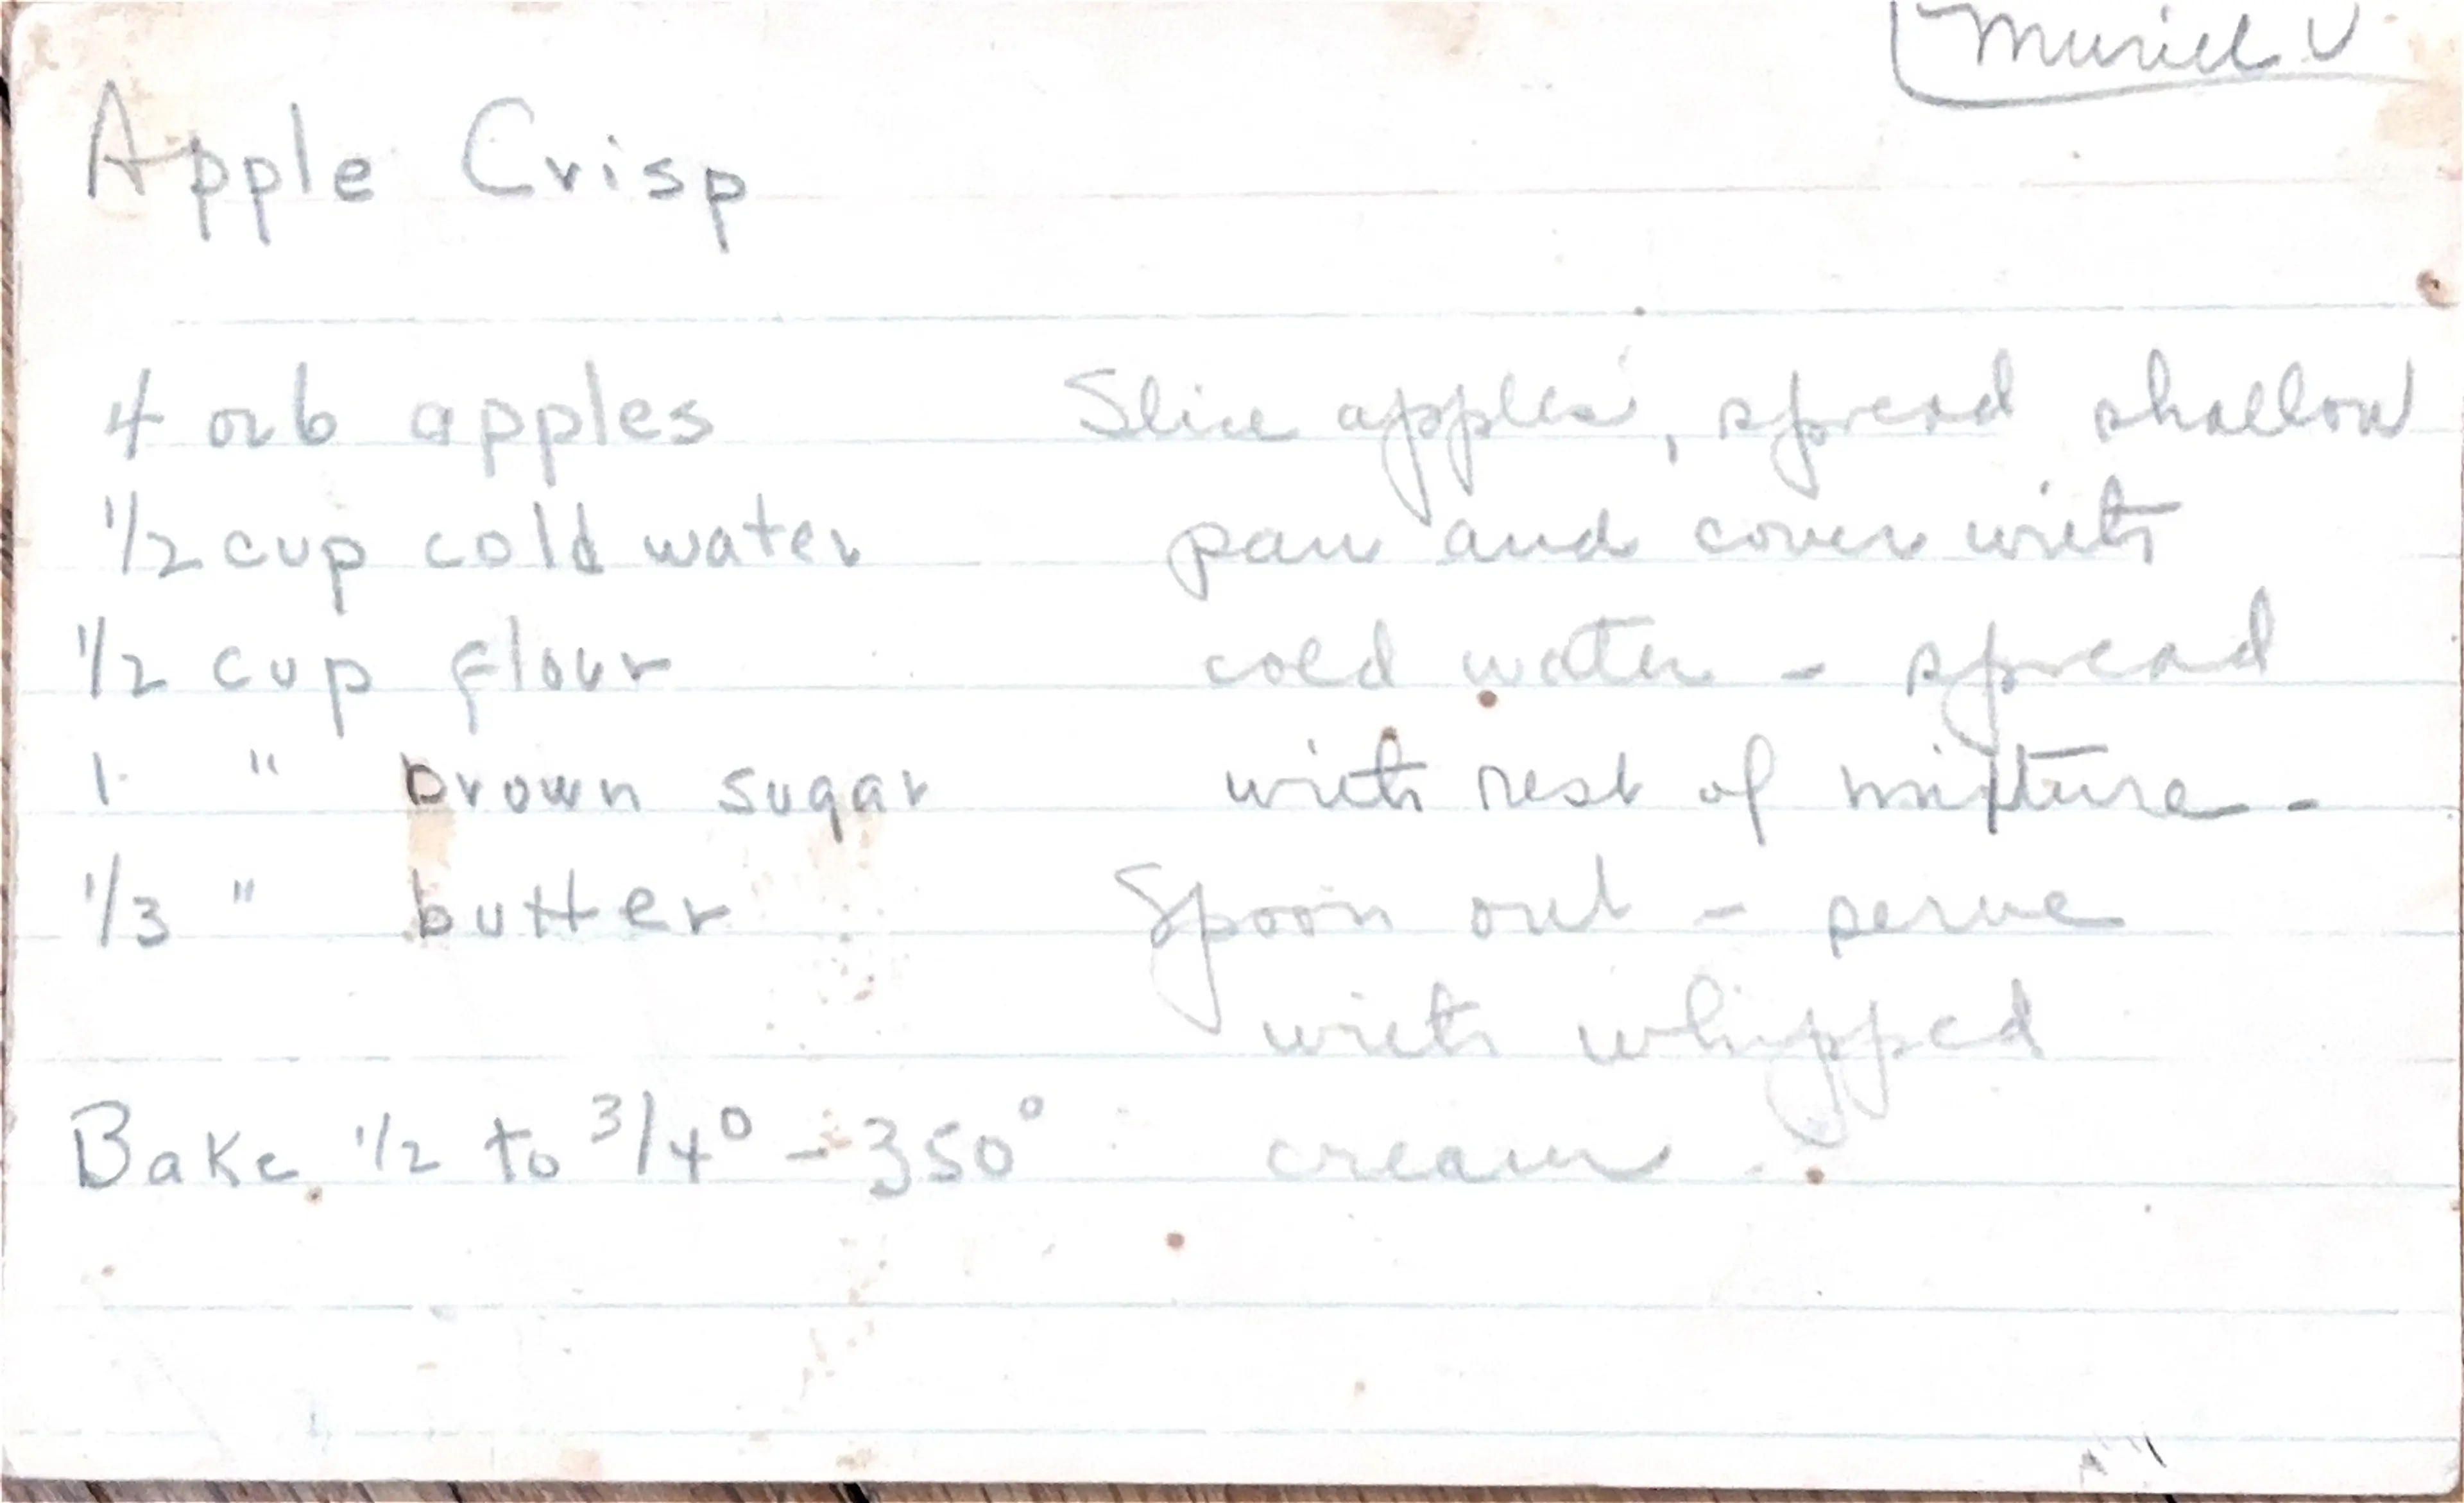 Muriel V
Apple Crisp
4 or 6 apples
1/2 cup cold water
1/2 cup flour
1 " brown sugar
1/3 " butter
Bake 1/2 to 3/4° - 350°
Slice apples, spread shallow
pan and cover with
cold water - spread
with rest of mixture -
Spoon out - serve
with whipped
cream.